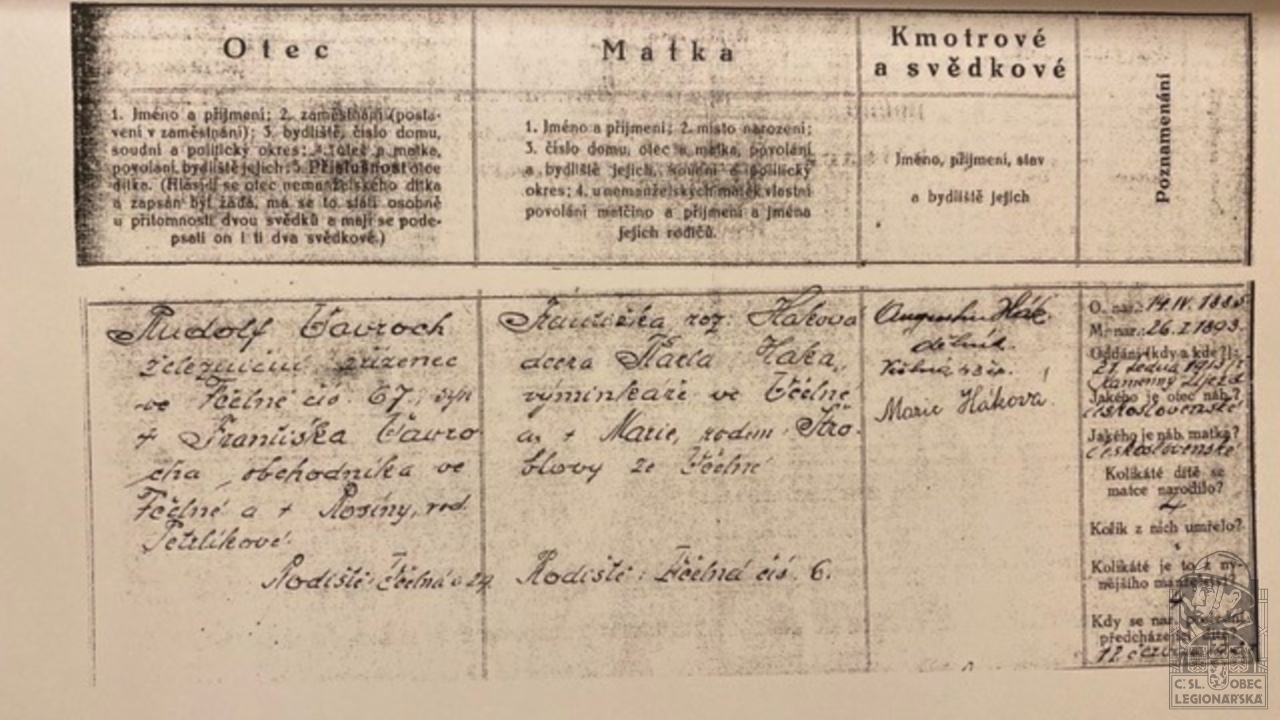 Otec
1. Jméno a přijmení; 2. zaměstnání (posta-
vení v zaměstnání); 3. bydliště, číslo domu,
soudní a politický okres; 4. otec a matka,
povolání, bydliště jejich; 5. Příslušnost otce
dítka. (Hlásí-li se otec nemanželského dítka
a zapsán být žádá, má se to státi osobně
u přítomnosti dvou svědků a mají se pode-
psati on i ti dva svědkové.)
Matka
1. Jméno a přijmení; 2. místo narození;
3. číslo domu, otec a matka, povolání
a bydliště jejich, soudní a politický
okres; 4. u nemanželských matek vlastní
povolání matčino a přijmení a jména
jejich rodičů.
Kmotrové
a svědkové
Jméno, přijmení, stav
a bydliště jejich
Poznamenání
Rudolf Vavroch
železniční zřízenec
ve Včelné čís. 67, syn
+ Františka Vavro-
cha, obchodníka ve
Včelné a + Rosiny, rod.
Petrlíkové
Rodiště: Včelná č. 24
Františka roz. Hákova
dcera Karla Háka,
výminkáře ve Včelné
a + Marie, rodem
ze Včelné
Rodiště: Včelná čís. 6.
Augustin Hák
dělník
Včelná
Marie Háková
O. nar.: 14.IV. 1885
M. nar.: 26.I.1893
Oddáni (kdy a kde?):
21. ledna
Kamenný Újezd
Jakého je otec náb.?
československé
Jakého je náb. matka?
československé
Kolikáté dítě se
matce narodilo?
4
Kolik z nich umřelo?
Kolikáté je to z ny-
nějšího manželství?
4
Kdy se nar. poslední
předcházející dítě?
12 června
Č. SL. OBEC
LEGIONÁŘSKÁ